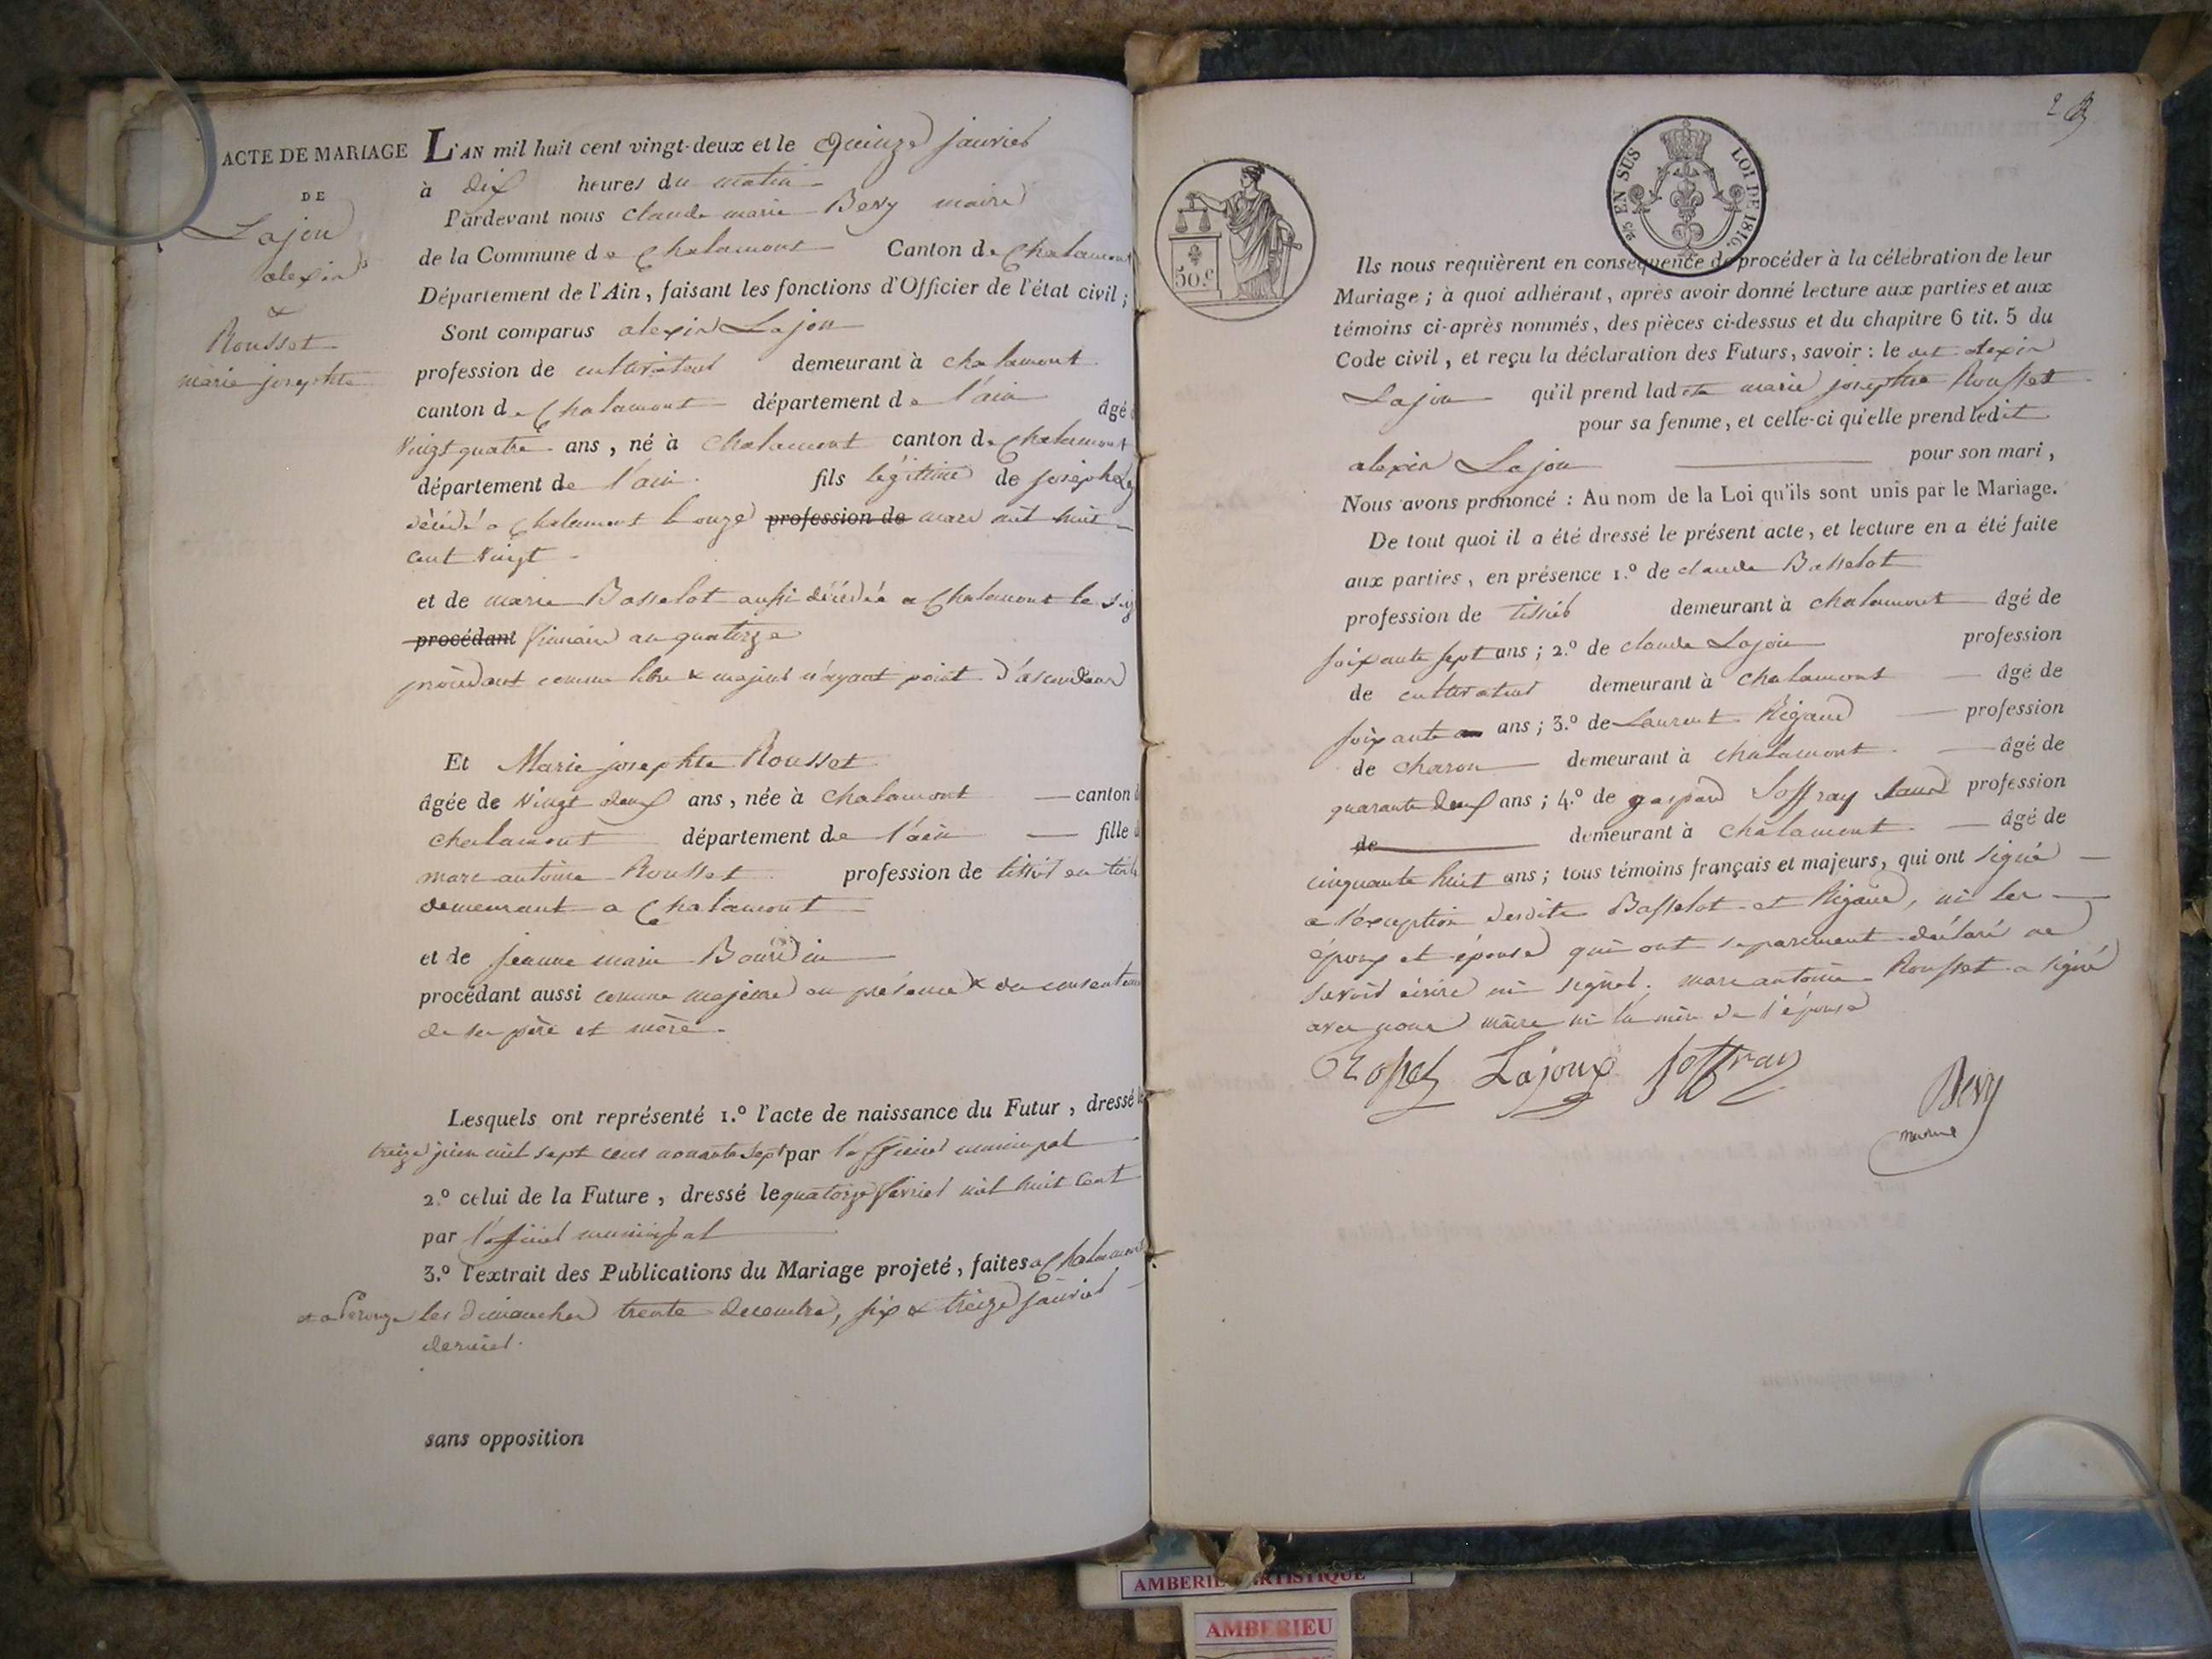 ACTE DE MARIAGE
DE
Lajou
alexis
&
Rousset
marie josephte
L'AN mil huit cent vingt-deux et le Quinze janvier
à dix heures du matin
Pardevant nous Claude marie Bevy maire
de la Commune de Chalamont Canton de Chalamont
Département de l'Ain, faisant les fonctions d'Officier de l'état civil;
Sont comparus alexis Lajou
profession de cultivateur demeurant à chalamont
canton de Chalamont département de l'ain âgé
Vingt quatre ans, né à Chalamont canton de Chalamont
département de l'ain fils légitime de joseph
décédé a Chalamont le onze profession de mars mil huit
cent Vingt
et de marie Basselot aussi décédée a Chalamont le
procédant frimaire an quatorze
procédant comme libre & majeur n'ayant point d'ascendans
Et Marie josephte Rousset
âgée de Vingt deux ans, née à Chalamont canton
Chalamont département de l'ain fille
marc antoine Rousset profession de tissier en
demeurant a Chalamont
et de jeanne marie Bourdin
procédant aussi comme majeure en présence & du
de ses père et mère.
Lesquels ont représenté 1.° l'acte de naissance du Futur, dressé le
treize juin mil sept cent nonante sept par l'officier municipal
2.° celui de la Future, dressé le quatorze février mil huit cent
par l'officier municipal
3.° l'extrait des Publications du Mariage projeté, faites a Chalamont
et a Perouge les dimanches trente decembre, six & treize janvier
dernier.
sans opposition
50.c
25 EN SUS LOI DE 1816.
Ils nous requièrent en conséquence de procéder à la célébration de leur
Mariage; à quoi adhérant, après avoir donné lecture aux parties et aux
témoins ci-après nommés, des pièces ci-dessus et du chapitre 6 tit. 5 du
Code civil, et reçu la déclaration des Futurs, savoir: le dit alexis
Lajou qu'il prend ladite marie josephte Rousset
pour sa femme, et celle-ci qu'elle prend ledit
alexis Lajou pour son mari,
Nous avons prononcé: Au nom de la Loi qu'ils sont unis par le Mariage.
De tout quoi il a été dressé le présent acte, et lecture en a été faite
aux parties, en présence 1.° de claude Basselot
profession de tissier demeurant à chalamont âgé de
soixante sept ans; 2.° de claude Lajou profession
de cultivateur demeurant à Chalamont âgé de
soixante ans; 3.° de Laurent Rigaud profession
de charon demeurant à chalamont âgé de
quarante deux ans; 4.° de gaspard Joffray profession
de demeurant à chalamont âgé de
cinquante huit ans; tous témoins français et majeurs, qui ont signé
a l'exception desdits Basselot et Rigaud, ni les
époux et épouse qui ont separement déclaré ne
savoir écrire ni signer. marc antoine Rousset a signé
avec nous maire ni la mère de l'épouse
Lajoux Joffray
Bevy
maire
AMBERIEU